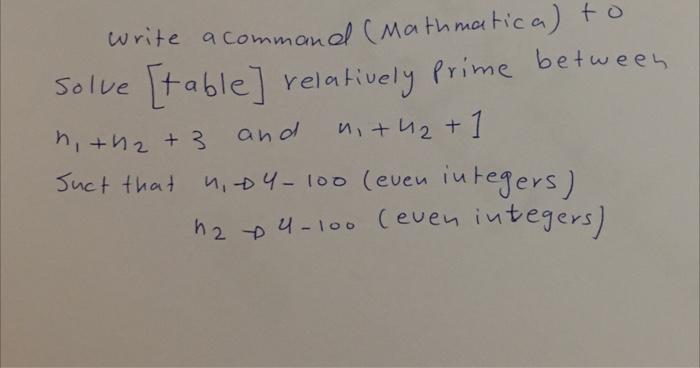 write a command (Mathmatica) to
Solve [table] relatively Prime between
n₁+n₂ + 3 and n₁+n₂+1
Suct that n₁→4-100 (even integers)
n₂→4-100 (even integers)